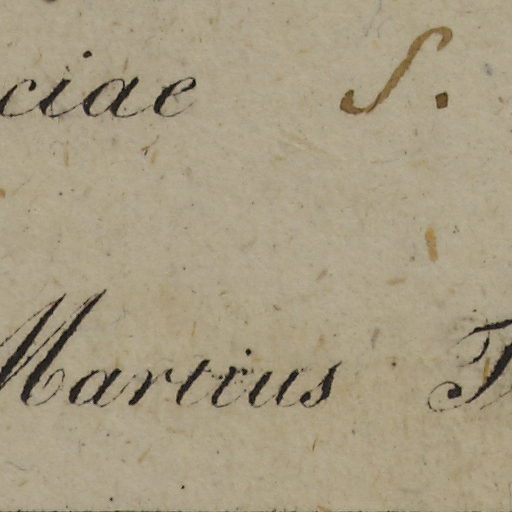 ciae S.
Martius T